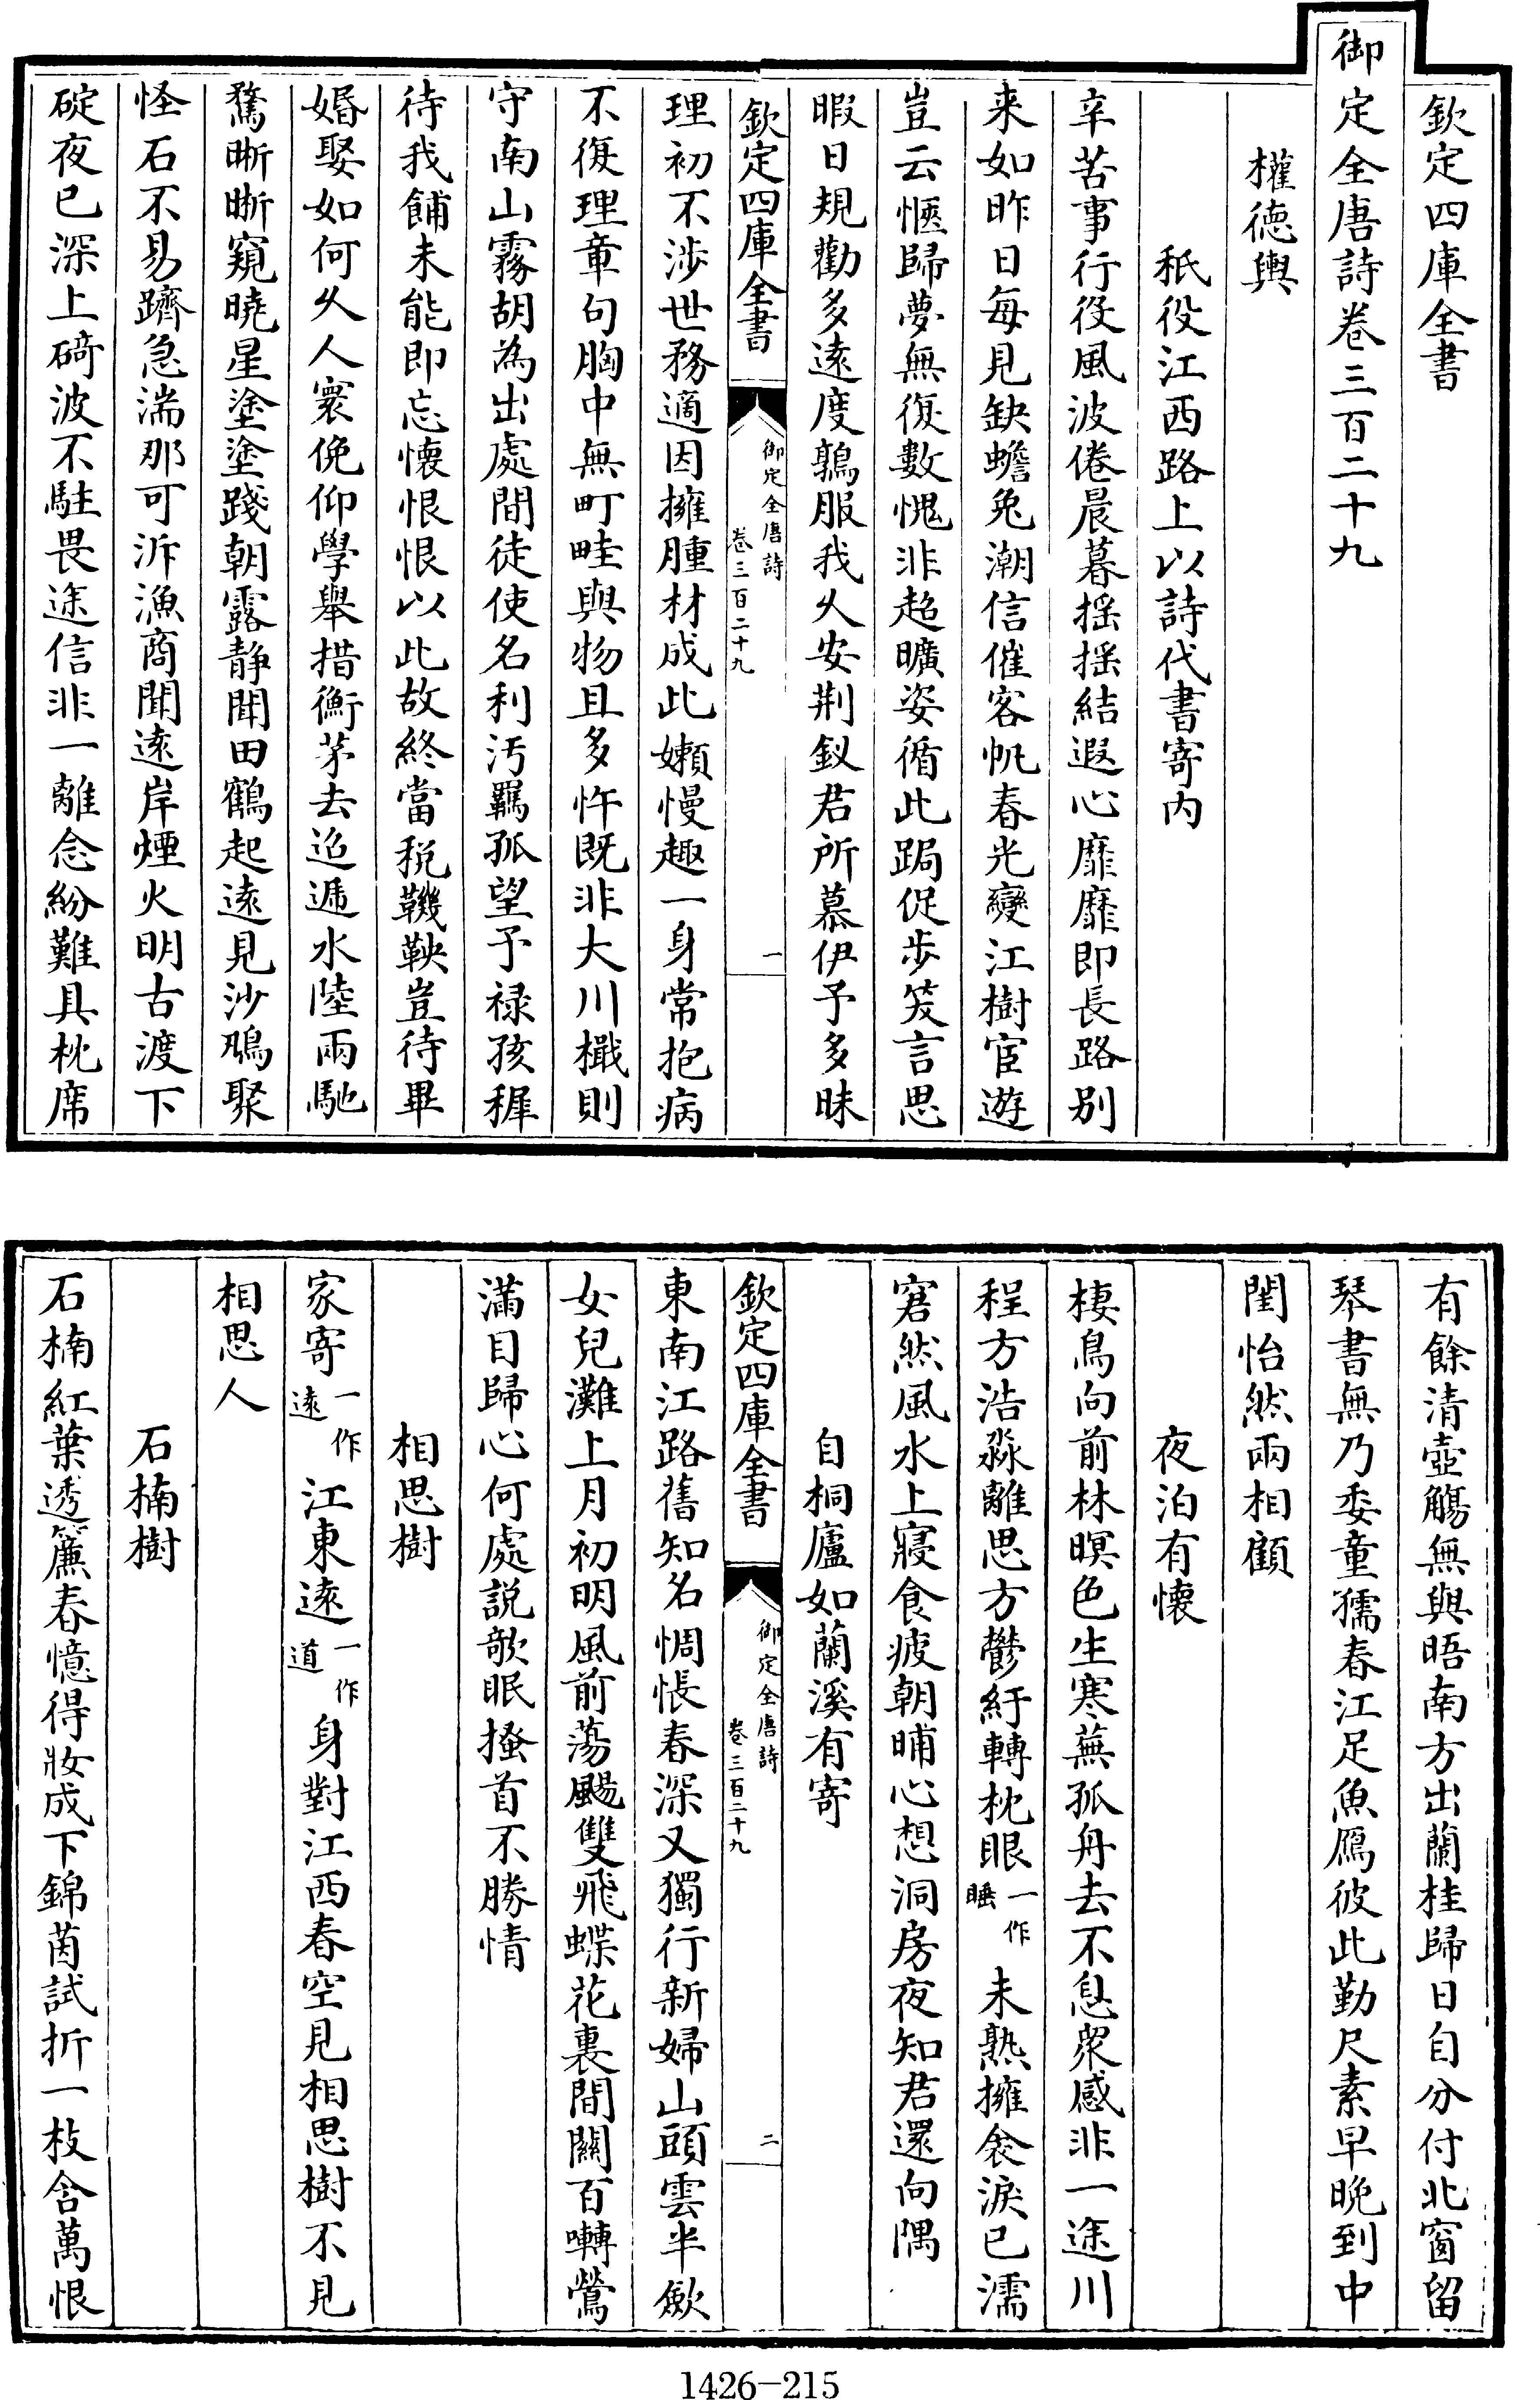 欽定四庫全書
御定全唐詩卷三百二十九
權徳輿
祇役江西路上以詩代書寄内
辛苦事行役風波倦晨暮揺揺結遐心靡靡即長路别
来如昨日每見缺蟾兔潮信催客帆春光變江樹宦遊
豈云愜歸夢無復數愧非超曠姿循此跼促步笑言思
暇日規勸多逺度鶉服我久安荆釵君所慕伊予多昧
欽定四庫全書
御定全唐詩
卷三百二十九
一
理初不涉世務適因擁腫材成此嬾慢趣一身常抱病
不復理章句胸中無町畦與物且多忤既非大川檝則
守南山霧胡為出處間徒使名利汚羈孤望予禄孩穉
待我餔未能即忘懷恨恨以此故終當税鞿鞅豈待畢
婚娶如何久人寰俛仰學舉措衡茅去迢遞水陸兩馳
騖晰晰窺曉星塗塗踐朝露静聞田鶴起逺見沙鴇聚
怪石不易躋急湍那可泝漁商聞逺岸煙火明古渡下
碇夜已深上碕波不駐畏途信非一離念紛難具枕席
有餘清壺觴無與晤南方出蘭桂歸日自分付北窗留
琴書無乃委童孺春江足魚鴈彼此勤尺素早晚到中
閨怡然兩相顧
夜泊有懷
棲鳥向前林暝色生寒蕪孤舟去不息衆感非一途川
程方浩淼離思方鬱紆轉枕眼一作睡未熟擁衾淚已濡
窘然風水上寢食疲朝晡心想洞房夜知君還向隅
自桐廬如蘭溪有寄
欽定四庫全書
御定全唐詩
卷三百二十九
二
東南江路舊知名惆悵春深又獨行新婦山頭雲半斂
女兒灘上月初明風前蕩颺雙飛蝶花裏間關百囀鶯
滿目歸心何處説欹眠搔首不勝情
相思樹
家寄一作逺江東逺一作道身對江西春空見相思樹不見
相思人
石楠樹
石楠紅葉透簾春憶得妝成下錦茵試折一枝含萬恨
1426-215